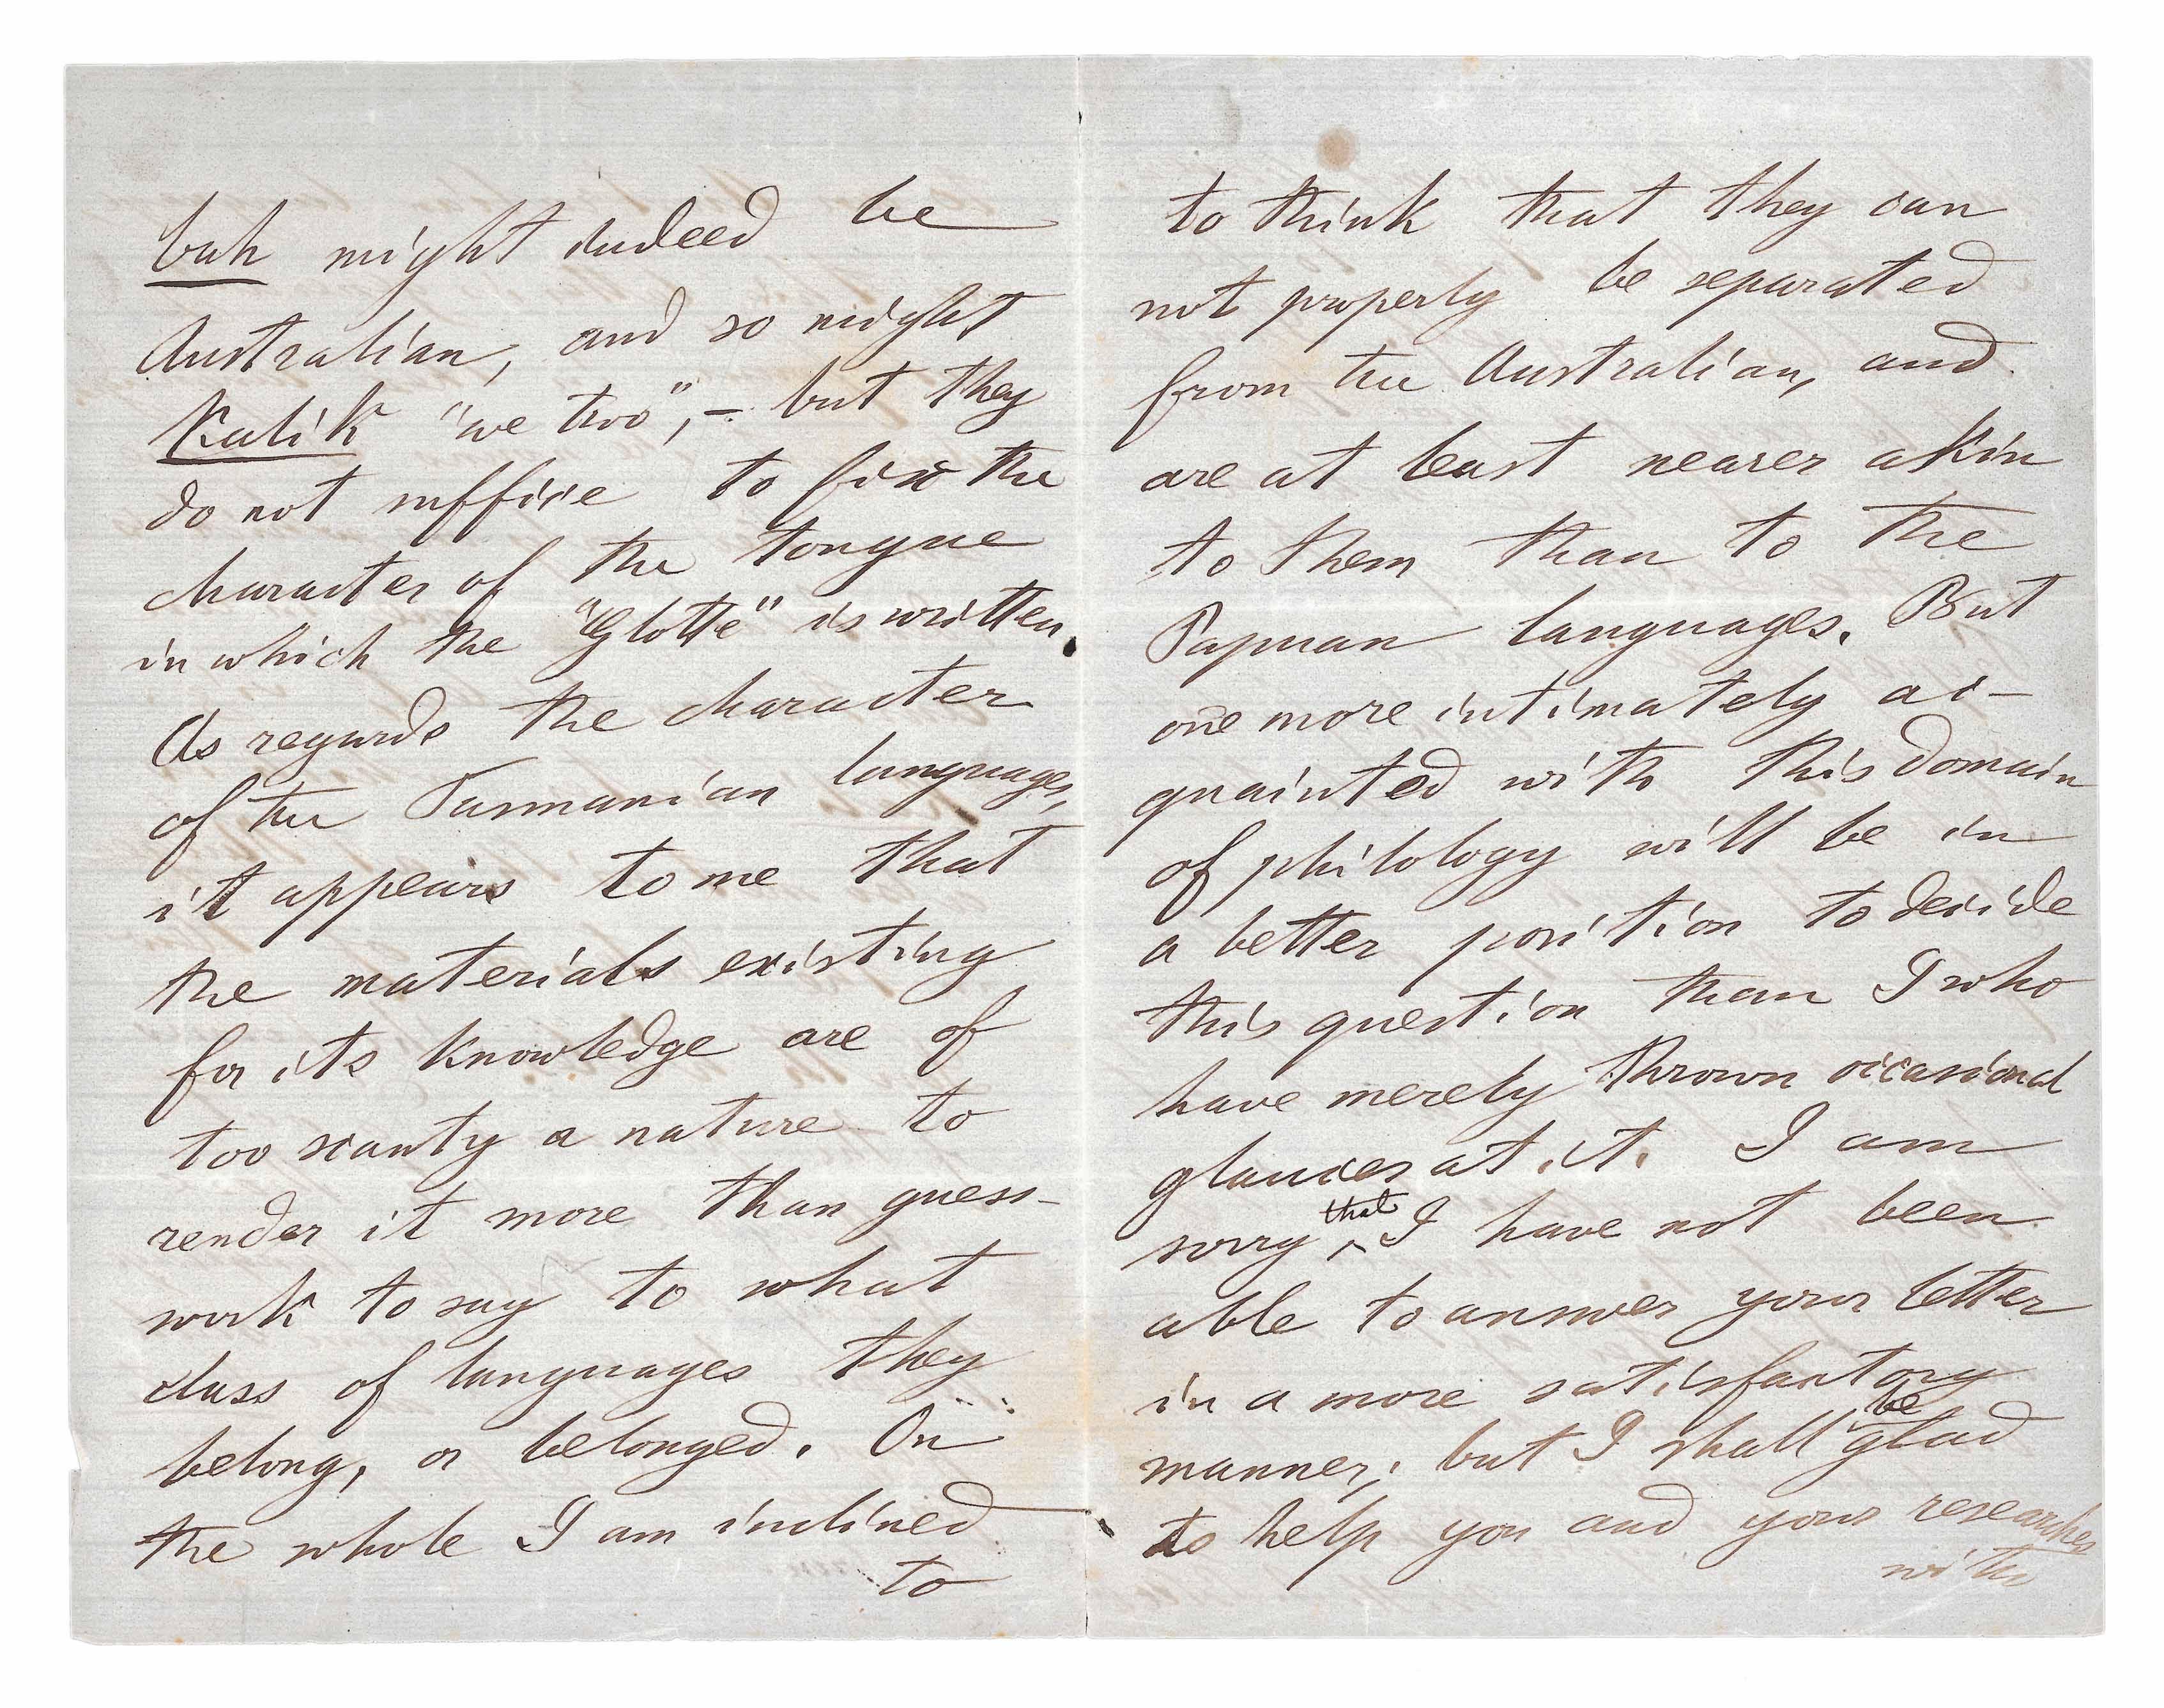 buh might indeed be
Australian, and so might
Kulik "we two", – but they
do not suffice to fix the
character of the tongue
in which the "Glotte" is written.
As regards the character
of the Tasmanian languages,
it appears to me that
the materials existing
for its knowledge are of
too scanty a nature to
render it more than guess-
work to say to what
class of languages they
belong, or belonged. On
the whole I am inclined
to
to think that they can
not properly be separated
from the Australian, and
are at least nearer akin
to them than to the
Papuan languages. But
one more intimately ac-
quainted with this domain
of philology will be in
a better position to decide
this question than I who
have merely thrown occasional
glances at it. I am
sorry that I have not been
able to answer your letter
in a more satisfactory
manner; but I shall be glad
to help you and your researches
with